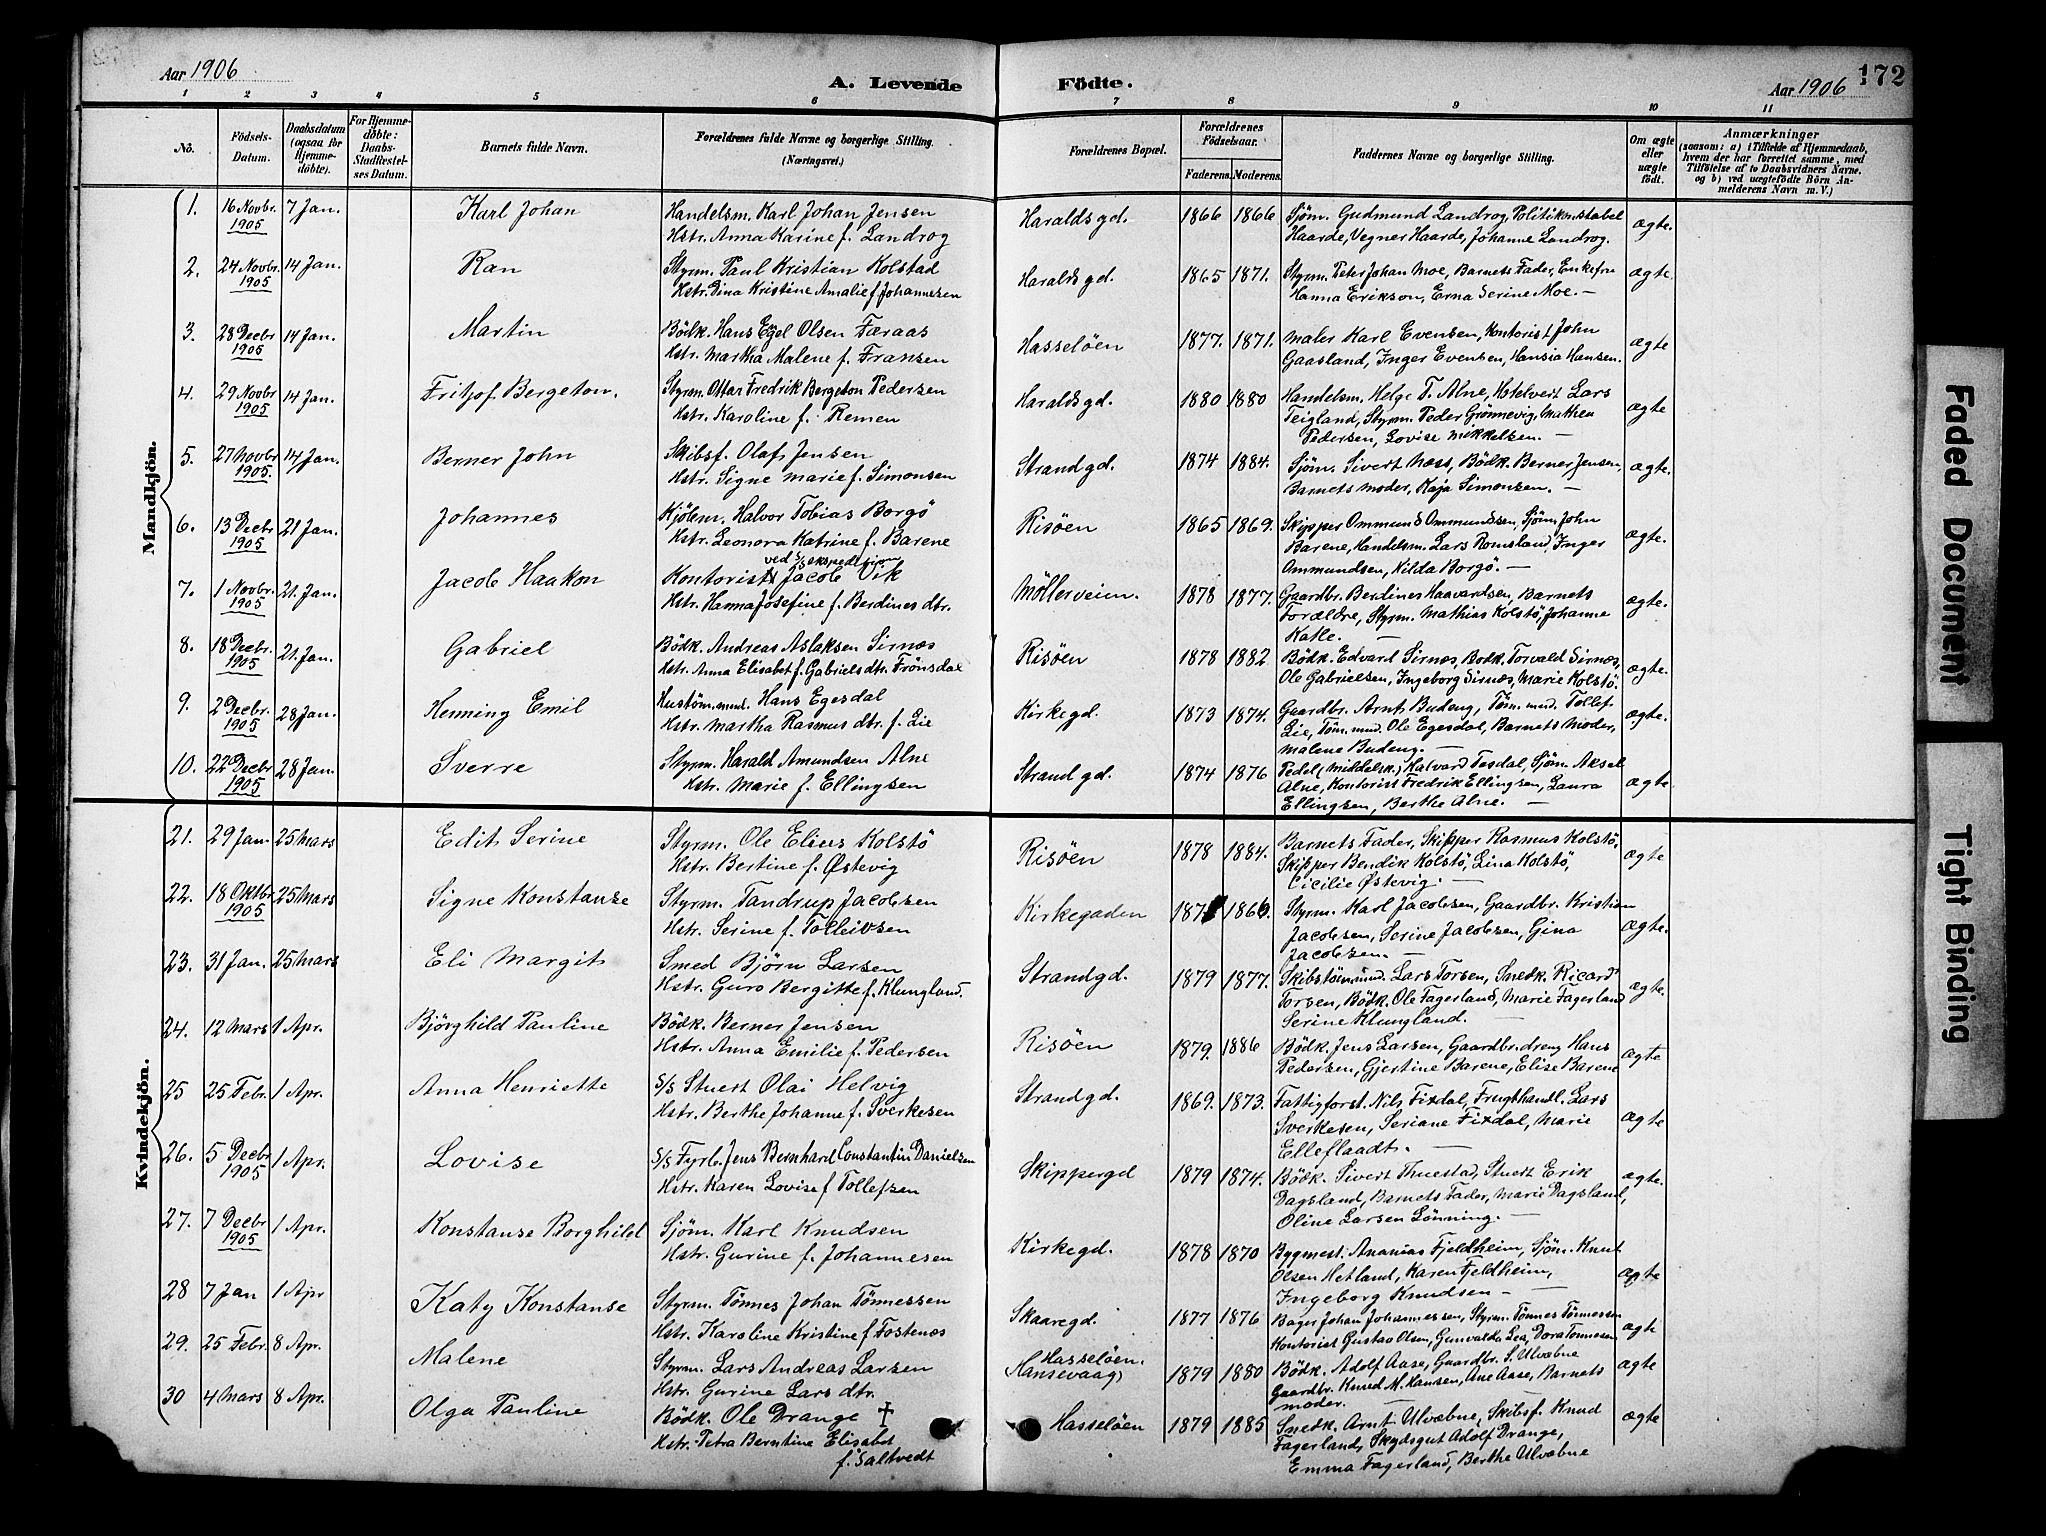 Aar 1906
A. Levende Födte.
Aar 1906
172
1 2 3 4 5 6 7 8 9 10 11
No.
Födsels-Datum.
Daabsdatum (ogsaa for Hjemme-döbte).
For Hjemme-döbte: Daabs-Stadfæstel-ses Datum.
Barnets fulde Navn.
Forældrenes fulde Navne og borgerlige Stilling. (Næringsvei.)
Forældrenes Bopæl.
Forældrenes Födselsaar.
Faderens. Moderens.
Faddernes Navne og borgerlige Stilling.
Om ægte eller uægte födt.
Anmærkninger
(saasom: a) i Tilfælde af Hjemmedaab, hvem der har forrettet samme, med Tilföielse af to Daabsvidners Navne, og b) ved uægtefödte Börn An-melderens Navn m. V.)
Mandkjön.
1. 16 Novbr. 1905 7 Jan. Karl Johan Handelsm. Karl Johan Jensen Haraldsgd. 1866 1866 Sjøm. Gudmund Landrog, Politikonstabel ægte.
Hstr. Anna Karine f. Landrog Haarde, Vegner Haarde, Johanne Landrog.
2. 24 Novbr. 1905 14 Jan. Ran Styrm. Paul Kristian Kolstad Haraldsgd. 1865 1871. Styrm. Peter Johan Moe, Barnets Fader, Enkefru ægte.
Hstr. Dina Kristine Amalie f. Johannesen Hanna Erikson, Erna Serine Moe. —
3. 28 Decbr 1905 14 Jan. Martin Bödk. Hans Egel Olsen Færaas Hasseløen 1877. 1871. Maler Karl Evensen, Kontorist John ægte
Hstr. Martha Malene f. Fransen Gaasland, Inger Evensen, Hansia Hansen.
4. 29 Novbr 1905 14 Jan. Fritjof Bergeton. Styrm. Ottar Fredrik Bergeton Pedersen Haraldsgd. 1880 1880 Handelsm. Helge T. Alne, Hotelvert Lars ægte
Hstr. Karoline f. Remen Teigland, Styrm. Peder Grønnevig, Mathea
Pedersen, Lovise Mikkelsen. —
5. 27 Novbr 1905. 14 Jan. Berner John Skibsf. Olaf Jensen Strandgd. 1874 1884. Sjöm. Sivert Næss, Bödk. Berner Jensen, ægte.
Hstr. Signe Marie f. Simonsen Barnets Moder, Kaja Simonsen. —
6. 13 Decbr 1905 21 Jan. Johannes Kjölem. Halvor Tobias Borgö Risöen 1865 1869. Skipper Ommund Ommundsen, Sjöm. John ægte.
Hstr. Leonora Katrine f. Barene Barene, Handelsm. Lars Romsland, Inger
Ommundsen, Hilda Borgö. —
7. 1 Novbr. 1905 21. Jan. Jacob Haakon Kontorist ved S/S ekspedition Jacob Vik Möllerveien. 1878 1877. Gaardbr. Berdines Haavardsen, Barnets ægte.
Hstr. Hanna Josefine f. Berdinesdtr. Forældre, Styrm. Mathias Kolstö, Johanne
Katle. —
8. 18 Decbr. 1905 21. Jan. Gabriel Bödk. Andreas Aslaksen Sirnæs Risöen 1878 1882 Bödk. Edvard Sirnæs, Bødk. Torvald Sirnæs, ægte.
Hstr. Anna Elisabet f. Gabrielsdtr. Frönsdal Ole Gabrielsen, Ingeborg Sirnæs, Marie Kolstö.
9. 2 Decbr. 1905 28 Jan. Henning Emil Hustöm.md. Hans Egesdal Kirkegd. 1873 1874. Gaardbr. Arnt Budeng, Töm.md. Tollef ægte.
Hstr. Martha Rasmusdtr. f. Lie Lie, Töm.md. Ole Egesdal, Barnets Moder,
Malene Budeng. —
10. 22 Decbr 1905 28 Jan. Sverre Styrm. Harald Amundsen Alne Strandgd. 1874 1876 Pedel (Middelsk.) Halvard Tesdal, Sjöm. Aksel ægte
Hstr. Marie f. Ellingsen Alne, Kontorist Fredrik Ellingsen, Laura
Ellingsen, Berthe Alne. —
Kvindekjön.
21. 29 Jan. 25 Mars Edit Serine Styrm. Ole Elius Kolstö Risöen 1878 1884. Barnets Fader, Skipper Rasmus Kolstö, ægte
Hstr. Bertine f. Østevig Skipper Bendik Kolstö, Lina Kolstö,
Cicilie Østevig. —
22. 18 Oktbr. 1905 25 Mars Signe Konstanse Styrm. Tandrup Jacobsen Kirkegaden 1866. Styrm. Karl Jacobsen, Gaardbr. Kristian ægte.
Hstr. Serine f. Tolleivsen Jacobsen, Serine Jacobsen, Gina
Jacobsen. —
23. 31 Jan. 25 Mars Eli Margit Smed Bjørn Larsen Strandgd. 1879 1877. Skibstömmd. Lars Torsen, Snedk. Ricard ægte.
Hstr. Guro Bergitte f. Klungland. Torsen, Bödk. Ole Fagerland, Marie Fagerland
Serine Klungland.
24. 12 Mars 1 Apr. Bjørghild Pauline Bödk. Berner Jensen Risöen 1879. 1886 Bödk. Jens Larsen, Gaardbr.dreng Hans ægte
Hstr. Anna Emilie f. Pedersen Pedersen, Gjertine Barene, Elise Barene
25 25 Febr. 1 Apr. Anna Henriette S/S Stuert Olai Helvig Strandgd. 1869. 1873. Fattigforst. Nils Fixdal, Frugthandl. Lars ægte
Hstr. Berthe Johanne f. Sverkesen Sverkesen, Seriane Fixdal, Marie
Elleflaadt. —
26. 5 Decbr 1905 1 Apr. Lovise S/S Fyrb. Jens Bernhard Constantin Danielsen Skippergd 1879 1874. Bödk. Sivert Thuestad, Stuert Erik ægte.
Hstr. Karen Lovise f Tollefsen Dagsland, Barnets Fader, Marie Dagsland,
Oline Larsen Lönning. —
27. 7 Decbr 1905 1 Apr. Konstanse Borghild Sjöm. Karl Knudsen Kirkegd. 1878 1870 Bygmest. Ananias Fjeldheim, Sjöm. Knut ægte
Hstr. Gurine f. Johannesen Olsen Hetland, Karen Fjeldheim,
Ingeborg Knudsen —
28 7 Jan 1 Apr Katy Konstanse Styrm. Tönnes Johan Tönnessen Skaaregd. 1877 1876 Bager Johan Johannessen, Styrm. Tönnes Tönnessen ægte
Hstr. Karoline Kristine f. Fostenæs Kontorist Gustav Olsen, Gunvalda Lea, Dora Tönnesen
29. 25 Febr. 8 Apr. Malene Styrm. Lars Andreas Larsen Hasseløen. (Hansevaag) 1879 1880 Bödk. Adolf Aase, Gaardbr. S. Ulvøbne ægte
Hstr. Gurine Larsdtr. Gaardbr. Knud M. Hansen, Ane Aase, Barnets
Moder. —
30 4 Mars 8 Apr. Olga Pauline Bödk. Ole Drange † Hasselöen 1879 1885 Snedk. Arnt Ulvøbne, Skibsf. Knud ægte
Hstr. Petra Berntine Elisabet Fagerland, Skydsgut Adolf Drange,
f. Saltvedt Emma Fagerland, Berthe Ulvøbne
Faded Document
Tight Binding